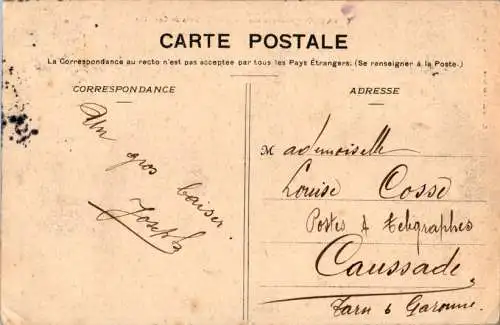 CARTE POSTALE
La Correspondance au recto n'est pas acceptée par tous les Pays Étrangers. (Se renseigner à la Poste.)
CORRESPONDANCE
Un
gros baiser.
ADRESSE
Mademoiselle
Louise Cosse
Postes & télégraphes
Caussade
Tarn & Garonne.